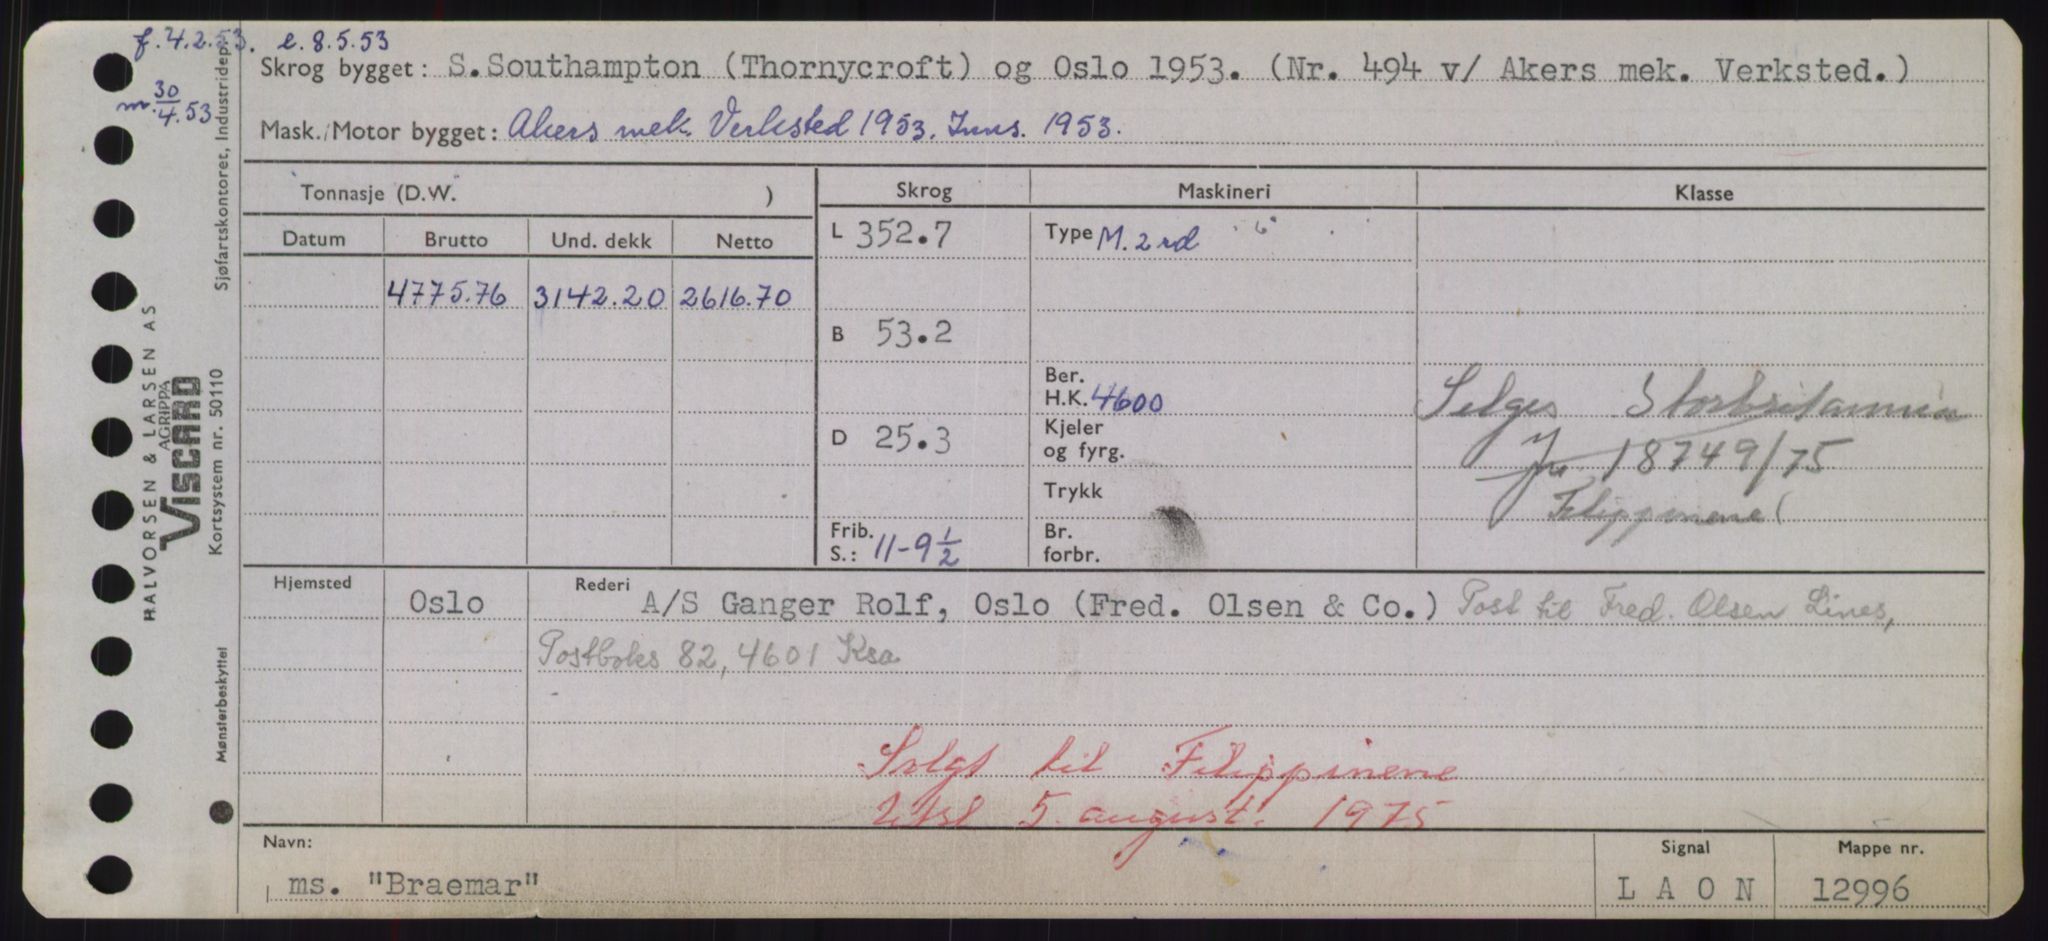 f. 4.2.53. e. 8.5.53
m. 30/4.53
Skrog bygget: S.Southampton (Thornycroft) og Oslo 1953. (Nr. 494 v/ Akers mek. Verksted.)
Mask./Motor bygget: Akers mek. Verksted 1953. Inns. 1953.
Tonnasje (D.W. ) Skrog Maskineri Klasse
Datum Brutto Und. dekk Netto
L 352.7 Type M. 2 rd "6"
4775.76 3142.20 2616.70
B 53.2
Ber.
H.K. 4600
Selges Storbritannia
D 25.3 Kjeler
og fyrg.
Jn. 18749/75
Trykk
Filippinene
Frib.
S.: 11-9 1/2
Br.
forbr.
Hjemsted Rederi
Oslo A/S Ganger Rolf, Oslo (Fred. Olsen & Co.) Post til Fred. Olsen Lines,
Postboks 82, 4601 Ksa
Solgt til Filippinene
Utsl 5. august. 1975
Navn: Signal Mappe nr.
ms. "Braemar" L A O N 12996
HALVORSEN & LARSEN AS
AGRIPPA
VISCARD
Sjøfartskontoret, Industridep.
Kortsystem nr. 50110
Mønsterbeskyttet